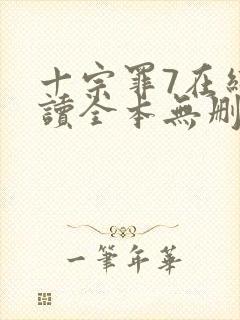 十宗罪7在
讀全本無刪
一筆年華